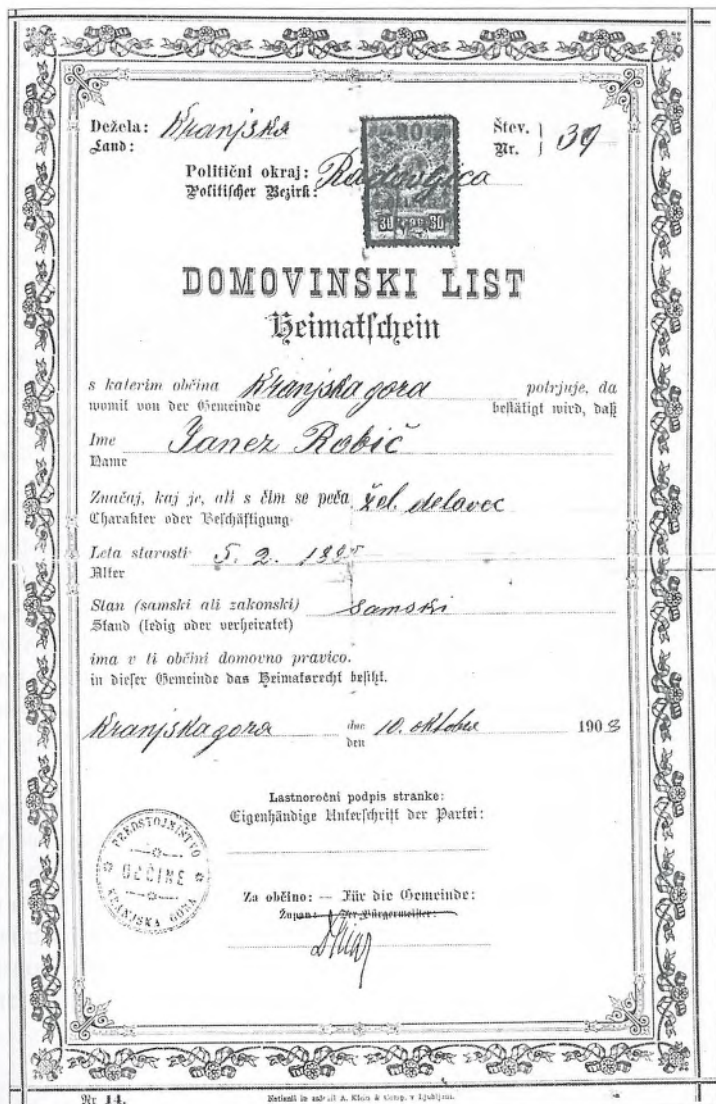 Dežela: Kranjska Štev. } 39
Land: Nr. }
Politični okraj: Radovljica
Politischer Bezirk:
30 30
DOMOVINSKI LIST
Heimatschein
s katerim občina Kranjska gora potrjuje, da
womit von der Gemeinde bestätigt wird, daß
Ime Janez Robič
Name
Značaj, kaj je, ali s čim se peča žel. delavec
Charakter oder Beschäftigung
Leta starosti 5. 2.
Alter
Stan (samski ali zakonski) samski
Stand (ledig oder verheiratet)
ima v ti občini domovno pravico.
in dieser Gemeinde das Heimatsrecht besitzt.
Kranjska gora dne 10. oktobra 1908
den
Lastnoročni podpis stranke:
Eigenhändige Unterschrift der Partei:
PREDSTOJNIŠTVO
OBČINE
KRANJSKA GORA
Za občino: — Für die Gemeinde:
Župan: Der Bürgermeister:
Nr 14.
Natisnil in založil A. Klein & Comp. v Ljubljani.